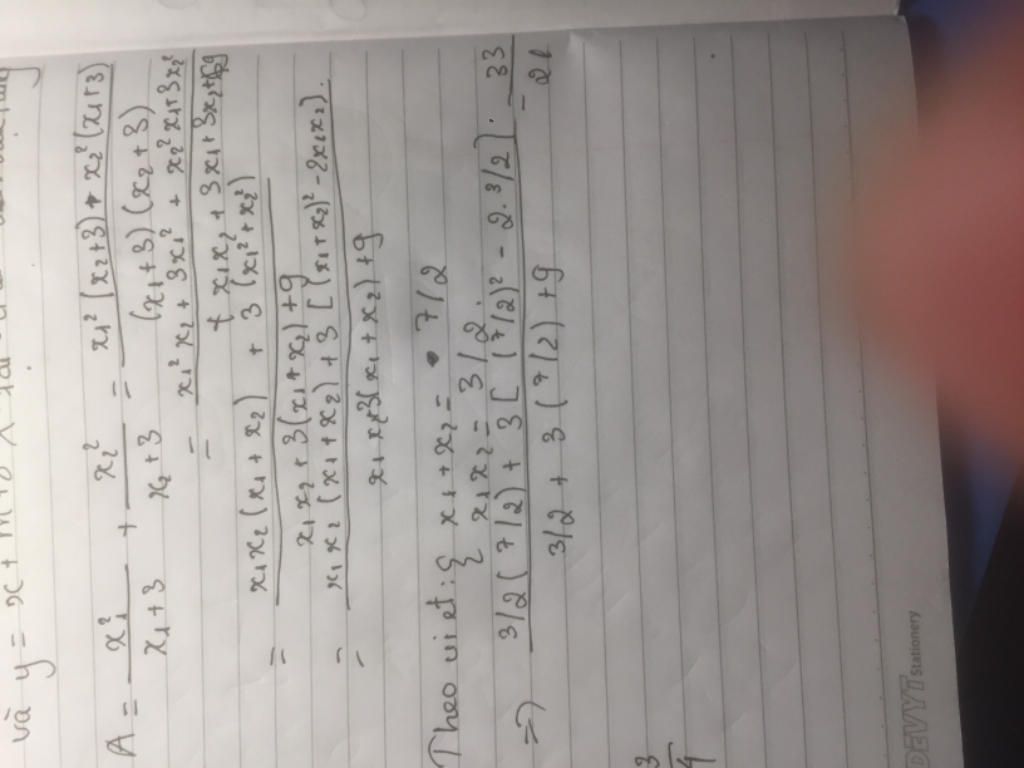 và y = x +
A = x₁²/(x₁+3) + x₂²/(x₂+3) = (x₁²(x₂+3) + x₂²(x₁+3))/((x₁+3)(x₂+3))
= (x₁²x₂ + 3x₁² + x₂²x₁ + 3x₂²)/(x₁x₂ + 3x₁ + 3x₂ + 9)
= (x₁x₂(x₁+x₂) + 3(x₁²+x₂²))/(x₁x₂ + 3(x₁+x₂) + 9)
= (x₁x₂(x₁+x₂) + 3[(x₁+x₂)² - 2x₁x₂])/(x₁x₂+3(x₁+x₂)+9)
Theo viet: { x₁+x₂ = 7/2
{ x₁x₂ = 3/2
=> (3/2(7/2) + 3[(7/2)² - 2.3/2])/(3/2 + 3(7/2) + 9) = 33/21
3/4
DEVYT Stationery